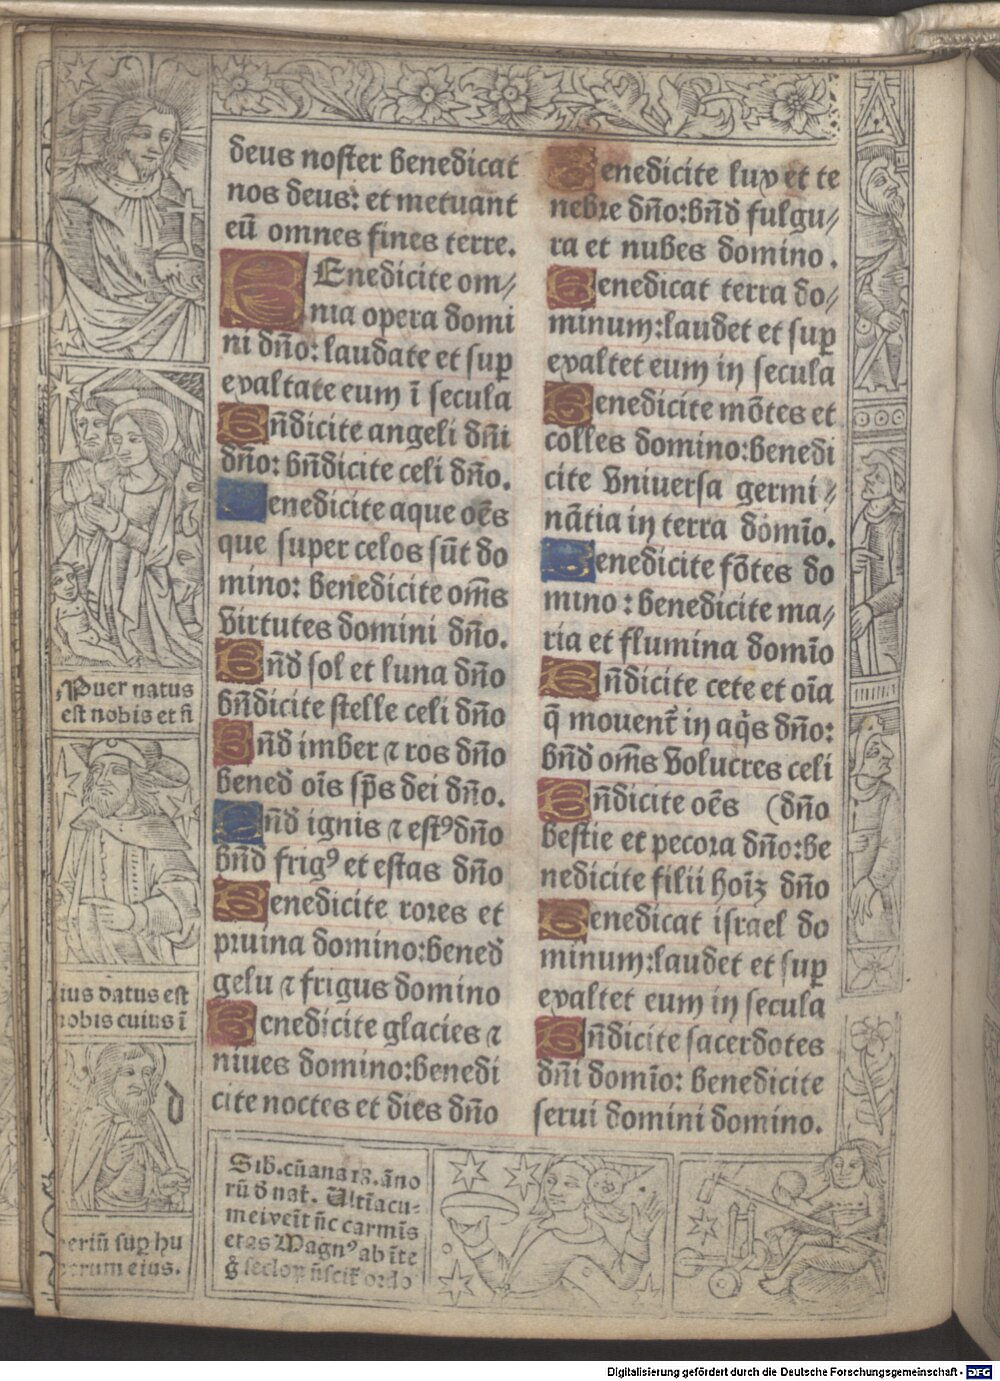 deus noster benedicat
nos deus: et metuant
eū omnes fines terre.
BEnedicite om⸗
nia opera domi
ni dño: laudate et suꝑ
exaltate eum ī secula
Bñdicite angeli dñi
dño: bñdicite celi dño.
Benedicite aque oēs
que super celos sūt do
mino: benedicite om̄s
virtutes domini dño.
Bñd sol et luna dño
bñdicite stelle celi dño
Bñd imber ⁊ ros dño
bened oīs sp̄s dei dño.
Bñd ignis ⁊ estꝰ dño
bñd frigꝰ et estas dño
Benedicite rores et
pruina domino: bened
gelu ⁊ frigus domino
Benedicite glacies ⁊
niues domino: benedi
cite noctes et dies dño
Benedicite lux et te
nebre dño: bñd fulgu⸗
ra et nubes domino.
Benedicat terra do⸗
minum: laudet et suꝑ
exaltet eum in secula
Benedicite mōtes et
colles domino: benedi
cite vniuersa germi⸗
nātia in terra domīo.
Benedicite fōtes do
mino: benedicite ma⸗
ria et flumina domīo
Bñdicite cete et oīa
q̄ mouent᷑ in aq̄s dño:
bñd om̄s volucres celi
Bñdicite oēs (dño
bestie et pecora dño: be
nedicite filii hoīꝫ dño
Benedicat israel do
minum: laudet et suꝑ
exaltet eum in secula
Bñdicite sacerdotes
dñi domīo: benedicite
serui domini domino.
Puer natus
est nobis et fi
ius datus est
nobis cuius ī
d
eriū suꝑ hu
erum eius.
Sib. cūana 18. āno
rū d nat. Vltīacu-
mei veīt īic carmīs
etas Magnꝰ ab īte
g̊ secloꝝ nascit᷑ ordo
Digitalisierung gefördert durch die Deutsche Forschungsgemeinschaft - DFG